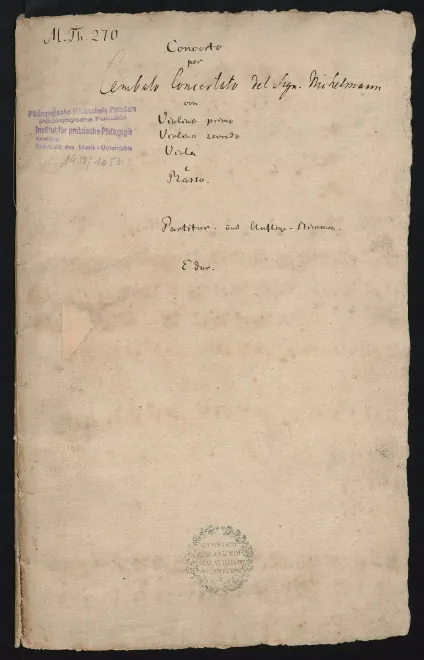 M. Th. 270
Concerto
per
Cembalo Concertato del Sign. Nichelmann
con
Violino primo
Violino secondo
Viola
e
Basso.
Pädagogische Hochschule Potsdam
Pädagogische Fakultät
Institut für praktische Pädagogik
des Musik-Unterrichts
Partitur- und Auflege-Stimmen.
E dur.